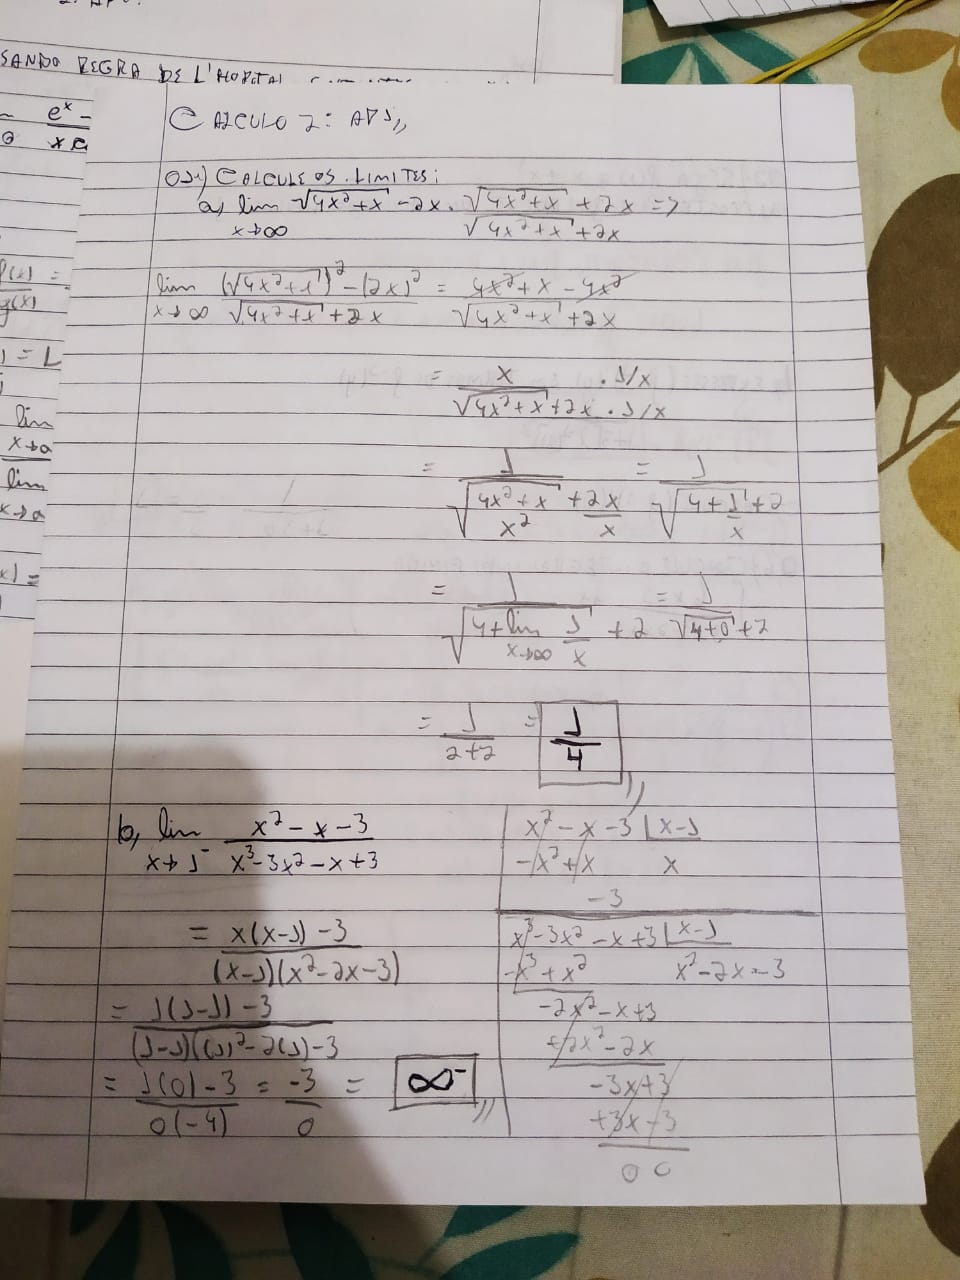 SANDO REGRA DE L'HOPITAL
e^x -
x
lim
x→a
lim
x→a
CALCULO 2: APS,,
01) CALCULE OS LIMITES:
a) lim √(4x²+x) - 2x . (√(4x²+x) + 2x)/(√(4x²+x) + 2x) =>
x→∞
lim ((√(4x²+x))² - (2x)²)/(√(4x²+x) + 2x) = (4x²+x - 4x²)/(√(4x²+x) + 2x)
x→∞
= x/(√(4x²+x) + 2x) . 1/x / . 1/x
= 1/(√((4x²+x)/x²) + 2x/x) = 1/(√(4+1/x) + 2)
= 1/(√(4+lim 1/x) + 2) = 1/(√(4+0) + 2)
x→∞
= 1/(2+2) = 1/4
b) lim (x² - x - 3)/(x³ - 3x² - x + 3)
x→1⁻
= (x(x-1) - 3)/((x-1)(x² - 2x - 3))
= (1(1-1) - 3)/((1-1)((1)² - 2(1) - 3)
= (1(0) - 3)/(0(-4)) = -3/0 = ∞⁻
x² - x - 3 | x-1
-x² + x x
-3
x³ - 3x² - x + 3 | x-1
-x³ + x² x² - 2x - 3
-2x² - x + 3
+2x² - 2x
-3x + 3
+3x - 3
0 0